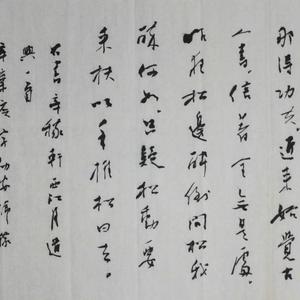 那得功夫近來始覺古
人書信著全無是處。
昨夜松邊醉倒問松我
醉何如只疑松動要
來扶以手推松曰去。
右書辛稼軒西江月遣
興一首
辛棄疾字幼安號稼